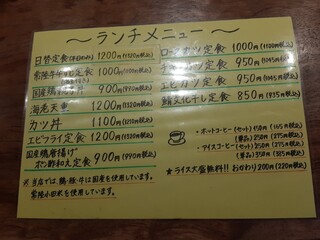 ～ランチメニュー～
日替定食 1200円(1320円税込)
常陸牛牛すじ定食 1000円(1100円税込)
国産鶏 定食 900円(990円税込)
海老天重 1200円(1320円税込)
カツ丼 1100円(1210円税込)
エビフライ定食 1200円(1320円税込)
国産鶏唐揚げ
ポン酢和え定食 900円(990円税込)
※当店では、鶏・豚・牛は国産を使用しています。
常陸小田米を使用しています。
ロースカツ定食 1000円(1100円税込)
チキンカツ定食 950円(1045円税込)
エビカツ定食 950円(1045円税込)
鯖文化干し定食 850円(935円税込)
・ホットコーヒー(セット)150円(165円税込)
(単品)350円(385円税込)
・アイスコーヒー(セット)250円(275円税込)
(単品)
★ライス大盛無料!! おかわり200円(220円税込)